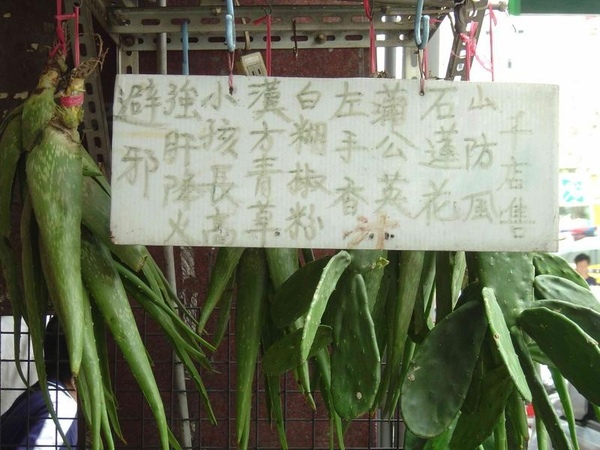 本店售
山防風
石蓮花
蒲公英
左手香
汁
白糊椒粉
漢方青草
小孩長高
強肝降火
避邪